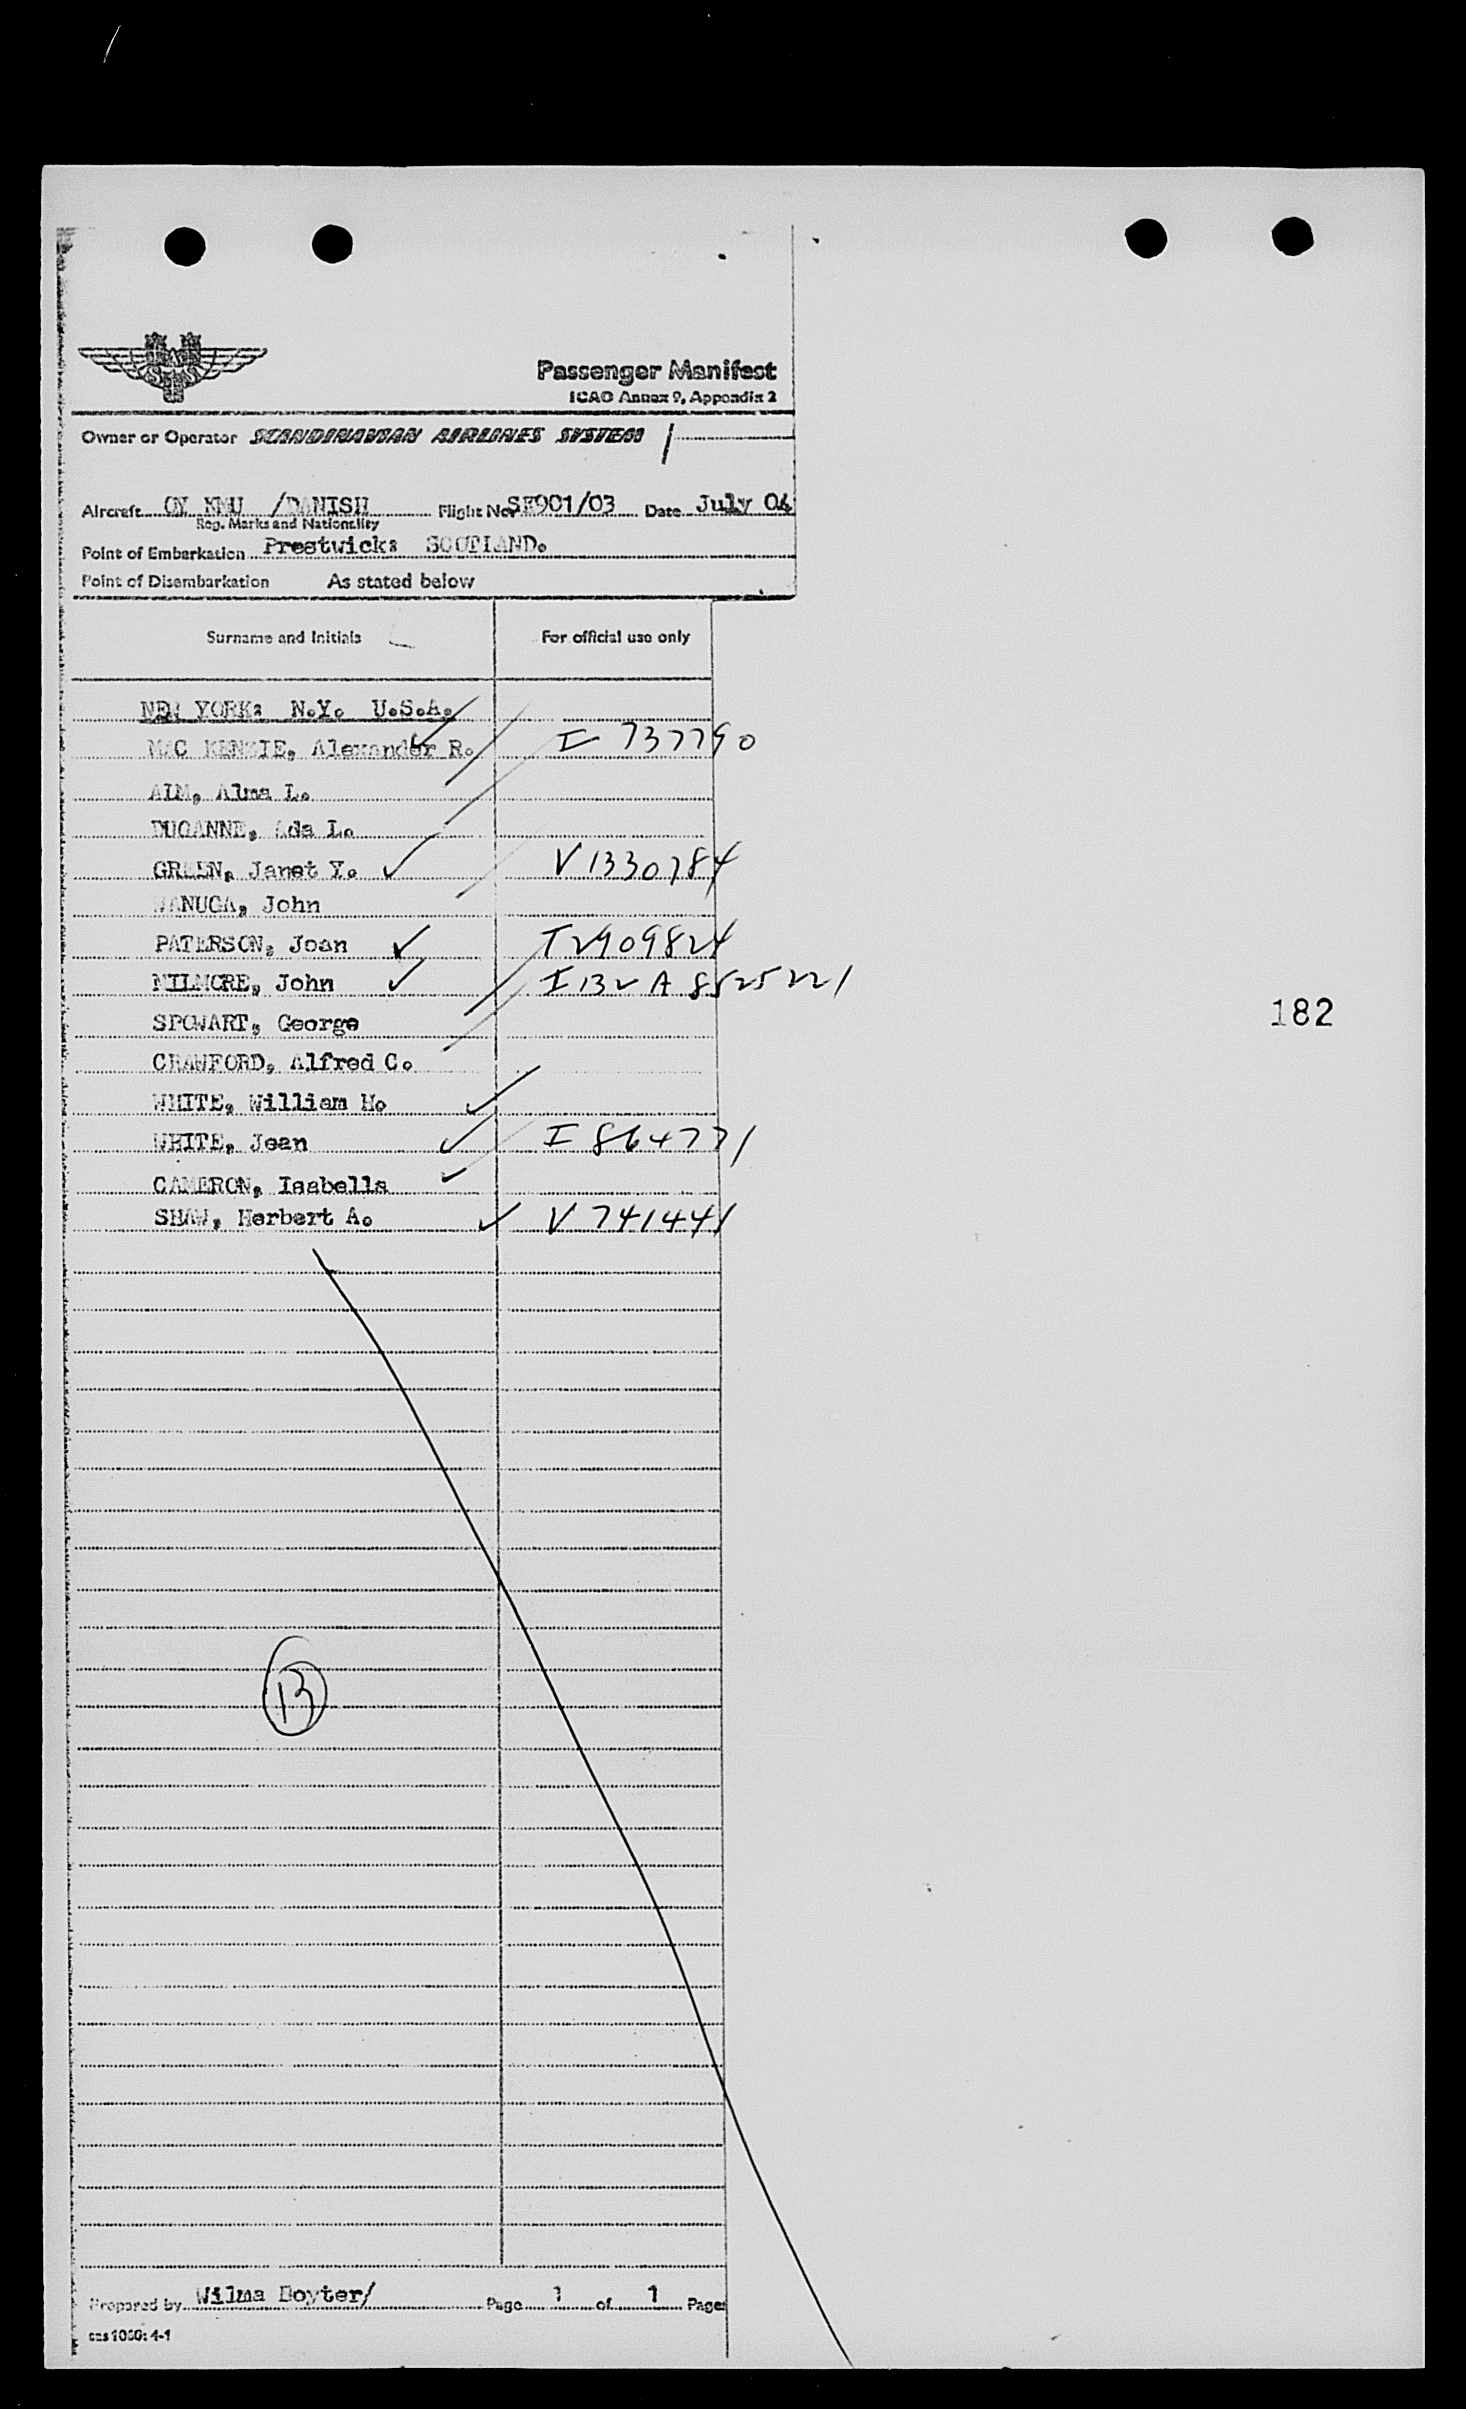 Passenger Manifest
ICAO Annex 9, Appendix 2
Owner or Operator SCANDINAVIAN AIRLINES SYSTEM
Aircraft OY KMU /DANISH Flight No. SK901/03 Date July 04
Reg. Marks and Nationality
Point of Embarkation Prestwick: SCOTLAND.
Point of Disembarkation As stated below
Surname and Initials For official use only
NEW YORK: N.Y. U.S.A.
MAC KENZIE, Alexander R. I 737790
ALM, Alma L.
DUGANNE, Ada L.
GREEN, Janet Y. V 1330784
JANUGA, John
PATERSON, Joan T2909824
MILMORE, John I 132 A 8525221
SPOWART, George
182
CRAWFORD, Alfred C.
WHITE, William H.
WHITE, Jean I 864771
CAMERON, Isabella
SHAW, Herbert A. V 741441
13
Prepared by Wilma Boyter/ Page 1 of 1 Pages
sas 1060: 4-1